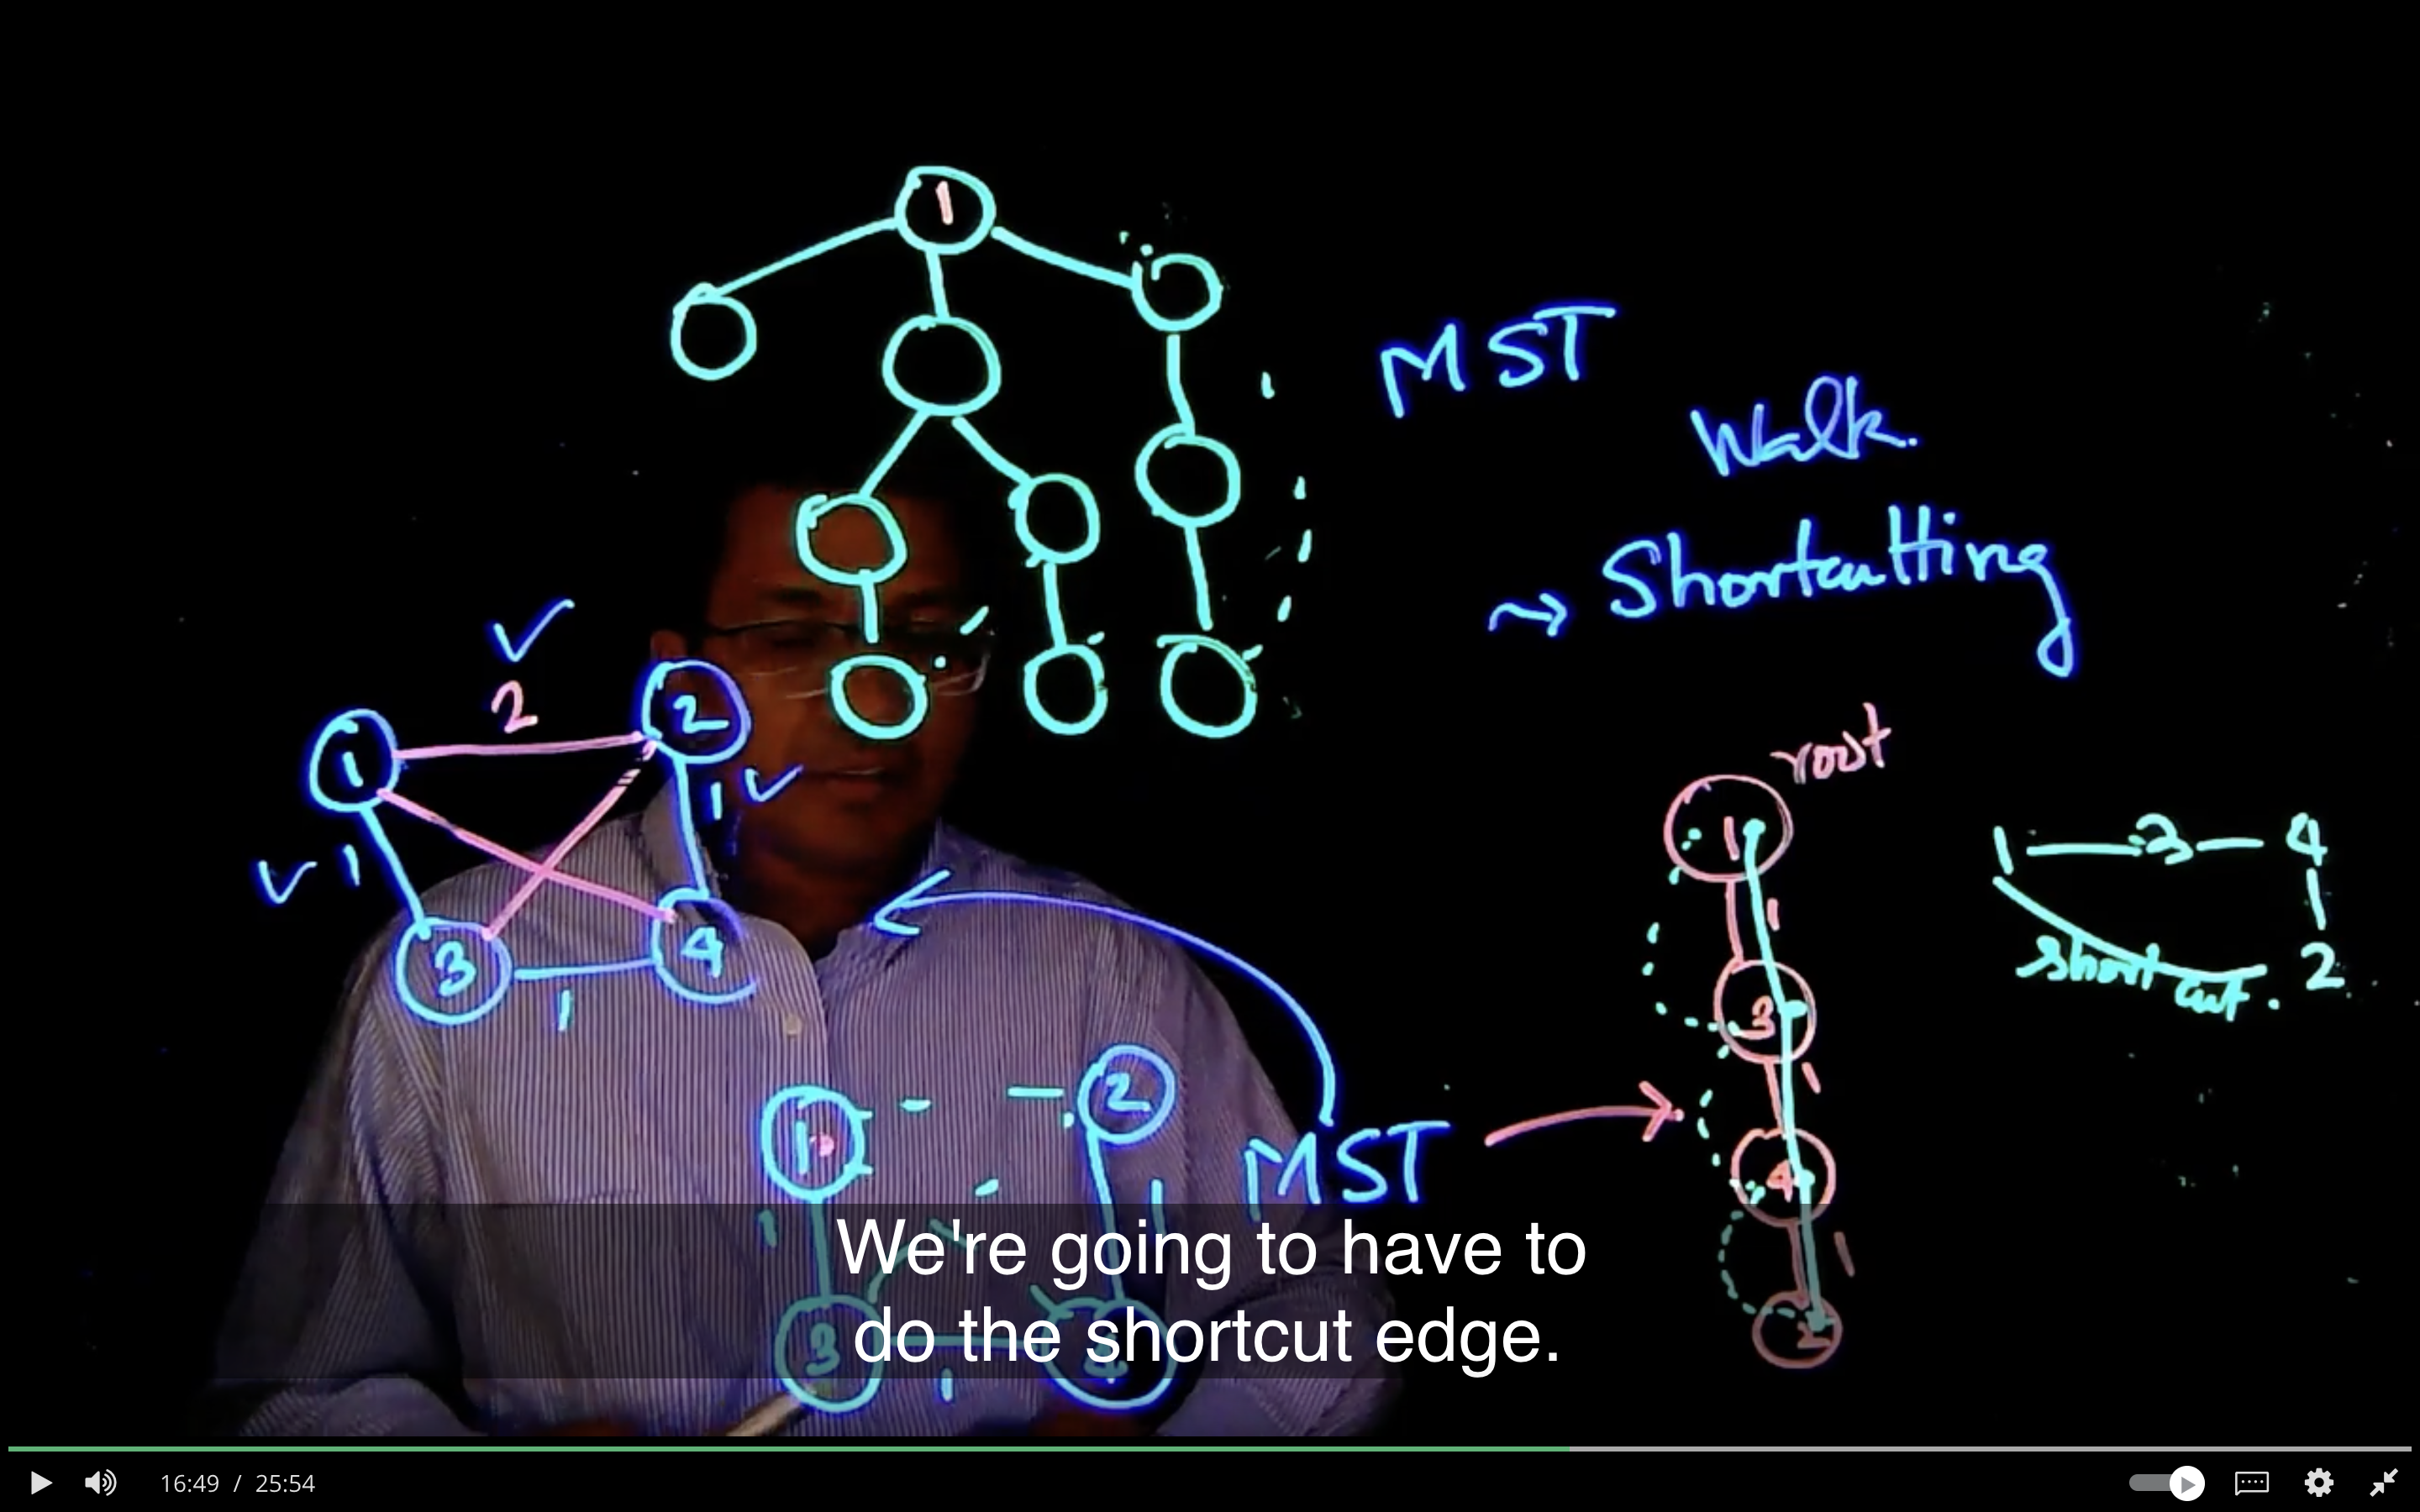 1
MST
Walk.
Shortcutting
2
1
2
1
1
3
4
1
root
1
1
3
1
4
1
2
1 3 4
2
short cut.
MST
1
2
1
1
3
1
We're going to have to
do the shortcut edge.
16:49 / 25:54